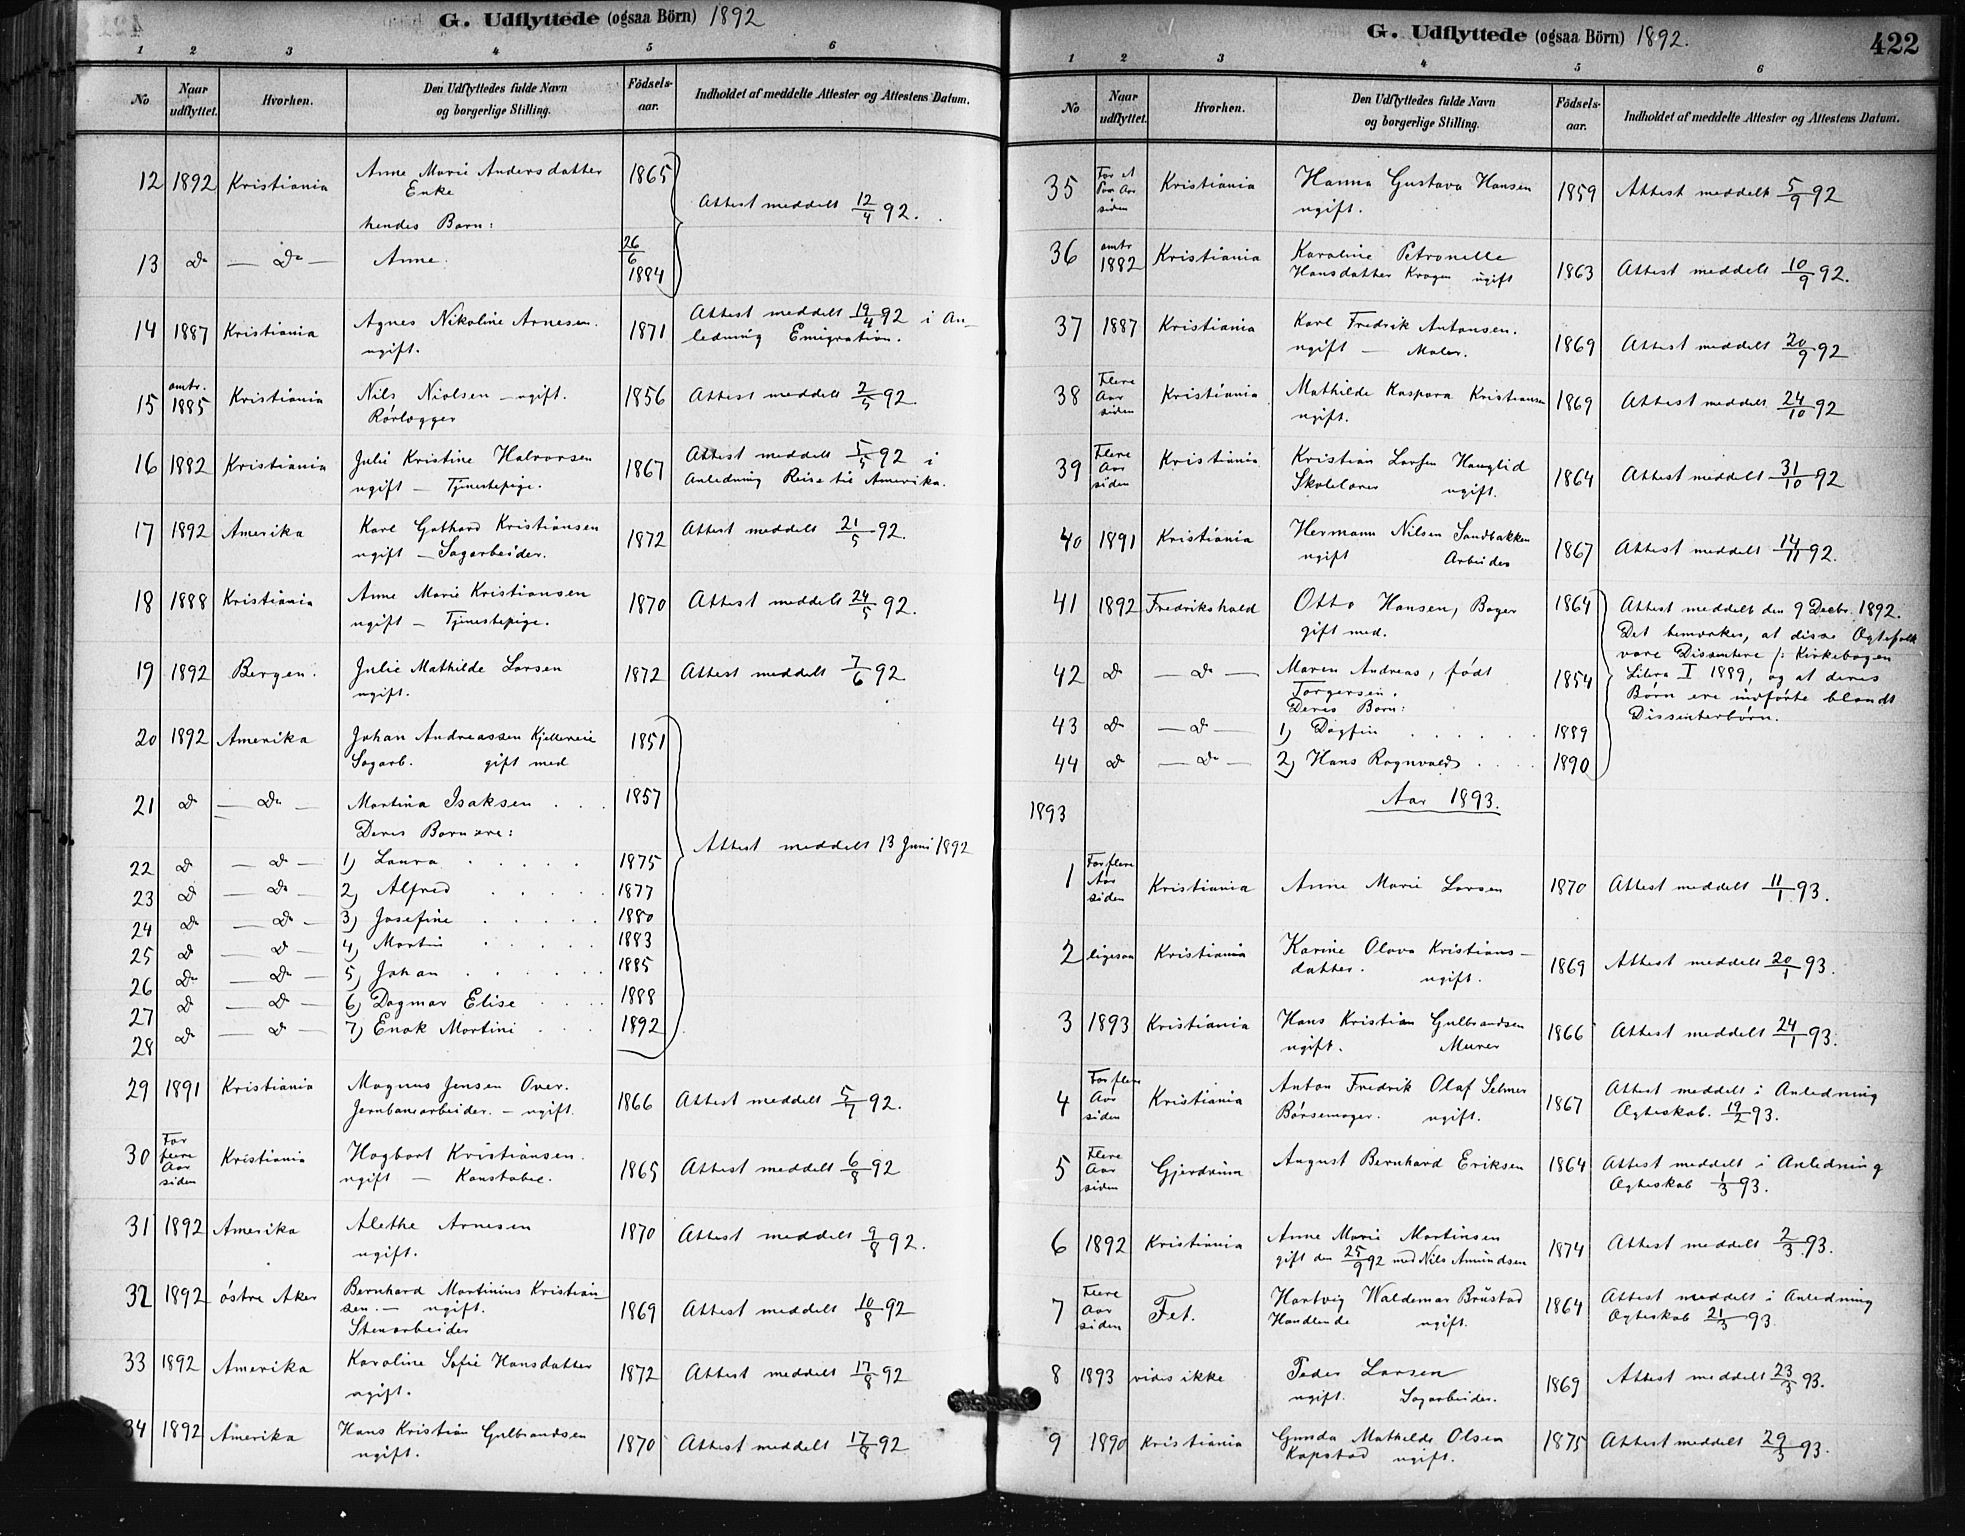 G. Udflyttede (ogsaa Börn) 1892
1 2 3 4 5 6
No Naar udflyttet. Hvorhen. Den Udflyttedes fulde Navn og borgerlige Stilling. Födsels-aar. Indholdet af meddelte Attester og Attestens Datum.
12 1892 Kristiania Anne Marie Andersdatter 1865
Enke Attest meddelt 12/4 92.
hendes Barn:
13 Do — Do — Anne. 26/6 1884
14 1887 Kristiania Agnes Nikoline Arnesen. 1871 Attest meddelt 19/4 92 i An-
ugift. ledning Emigration.
15 omtr. 1885 Kristiania Nils Nielsen — ugift. 1856 Attest meddelt 2/5 92.
Rörlægger
16 1882 Kristiania Julie Kristine Halvorsen 1867 Attest meddelt 5/5 92 i
ugift — Tjenestepige. Anledning Reise til Amerika.
17 1892 Amerika Karl Gothard Kristiansen 1872 Attest meddelt 21/5 92.
ugift — Sagarbeider.
18 1888 Kristiania Anne Marie Kristiansen 1870 Attest meddelt 24/5 92.
ugift — Tjenestepige.
19 1892 Bergen. Julie Mathilde Larsen 1872 Attest meddelt 7/6 92
ugift.
20 1892 Amerika Johan Andreassen Kjellereie 1851
Sagarb. gift med
21 Do — Do — Martina Isaksen . . . 1857
Deres Børn ere: Attest meddelt 13 Juni 1892
22 Do — Do — 1) Laura 1875
23 Do — Do — 2) Alfred 1877
24 Do — Do — 3) Josefine 1880
25 Do — Do — 4) Martin 1883
26 Do — Do — 5) Johan 1885
27 Do — Do — 6) Dagmar Elise 1888
28 Do — Do — 7) Enok Martini 1892
29 1891 Kristiania Magnus Jensen Over. 1866 Attest meddelt 5/7 92.
Jernbanearbeider. — ugift.
30 For flere Aar siden Kristiania Hagbart Kristiansen. 1865 Attest meddelt 6/8 92
ugift — Konstabel.
31 1892 Amerika Alethe Arnesen 1870 Attest meddelt 9/8 92.
ugift.
32 1892 östre Aker Bernhard Martinius Kristian-
sen. — ugift. 1869 Attest meddelt 10/8 92
Stenarbeider
33 1892 Amerika Karoline Sofie Hansdatter 1872 Attest meddelt 17/8 92
ugift.
34 1892 Amerika Hans Kristian Gulbrandsen 1870 Attest meddelt 17/8 92
ugift.
G. Udflyttede (ogsaa Börn) 1892. 422
1 2 3 4 5 6
No Naar udflyttet. Hvorhen. Den Udflyttedes fulde Navn og borgerlige Stilling. Födsels-aar. Indholdet af meddelte Attester og Attestens Datum.
35 For et Par Aar siden Kristiania Hanna Gustava Hansen 1859 Attest meddelt 5/9 92
ugift.
36 omtr 1882 Kristiania Karoline Petronelle
Hansdatter Kragen ugift 1863 Attest meddelt 10/9 92.
37 1887 Kristiania Karl Fredrik Antonsen. 1869 Attest meddelt 20/9 92
ugift — Maler.
38 Flere Aar siden Kristiania Mathilde Kaspara Kristiansen 1869 Attest meddelt 24/10 92
ugift.
39 Flere Aar siden Kristiania Kristian Larsen Hauglid 1864 Attest meddelt 31/10 92
Skolelærer ugift.
40 1891 Kristiania Hermann Nilsen Sandbakken 1867 Attest meddelt 14/11 92.
ugift Arbeider
41 1892 Fredrikshald Otto Hansen, Bager 1864 Attest meddelt den 9 Decbr. 1892.
gift med. Det bemærkes, at disse Ægtefolk
42 Do — Do — Maren Andreas, född 1854 vare Dissentere /: Kirkebogen
Torgersen. Litra I 1889, og at deres
Deres Børn: Børn ere indførte blandt
43 Do — Do — 1) Dagfin 1889 Dissenterbørn.
44 Do — Do — 2) Hans Ragnvald 1890
1893 Aar 1893.
1 For flere Aar siden Kristiania Anne Marie Larsen 1870 Attest meddelt 11/1 93.
2 ligesaa Kristiania Karine Olava Kristians-
datter. ugift. 1869 Attest meddelt 20/1 93.
3 1893 Kristiania Hans Kristian Gulbrandsen 1866 Attest meddelt 24/1 93.
ugift. Murer
4 For flere Aar siden Kristiania Anton Fredrik Olaf Selmer 1867 Attest meddelt i Anledning
Börsemager. ugift. Ægteskab. 19/2 93.
5 Flere Aar siden Gjerdrum August Bernhard Eriksen 1864 Attest meddelt i Anledning
Ægteskab 1/3 93.
6 1892 Kristiania Anne Marie Martinsen 1874 Attest meddelt 2/3 93.
gift den 25/9 92 med Nils Amundsen
7 Flere Aar siden Fet. Hartvig Waldemar Brustad 1864 Attest meddelt i Anledning
Handlende ugift. Ægteskab 21/3 93
8 1893 vides ikke Peder Larsen 1869 Attest meddelt 23/3 93.
ugift. Sagarbeider.
9 1890 Kristiania Gunda Mathilde Olsen 1875 Attest meddelt 29/3 93.
Kapstad ugift.